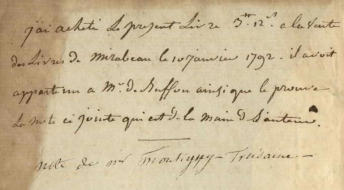 j'ai acheté Le present Livre 3tt 12s a la Vente
des Livres de mirabeau le 10 janvier 1792. il avoit
appartenu a Mr. de Buffon ainsi que le prouve
La note ci jointe qui est de la main de l'auteur.
note de mr montigny-Trudaine